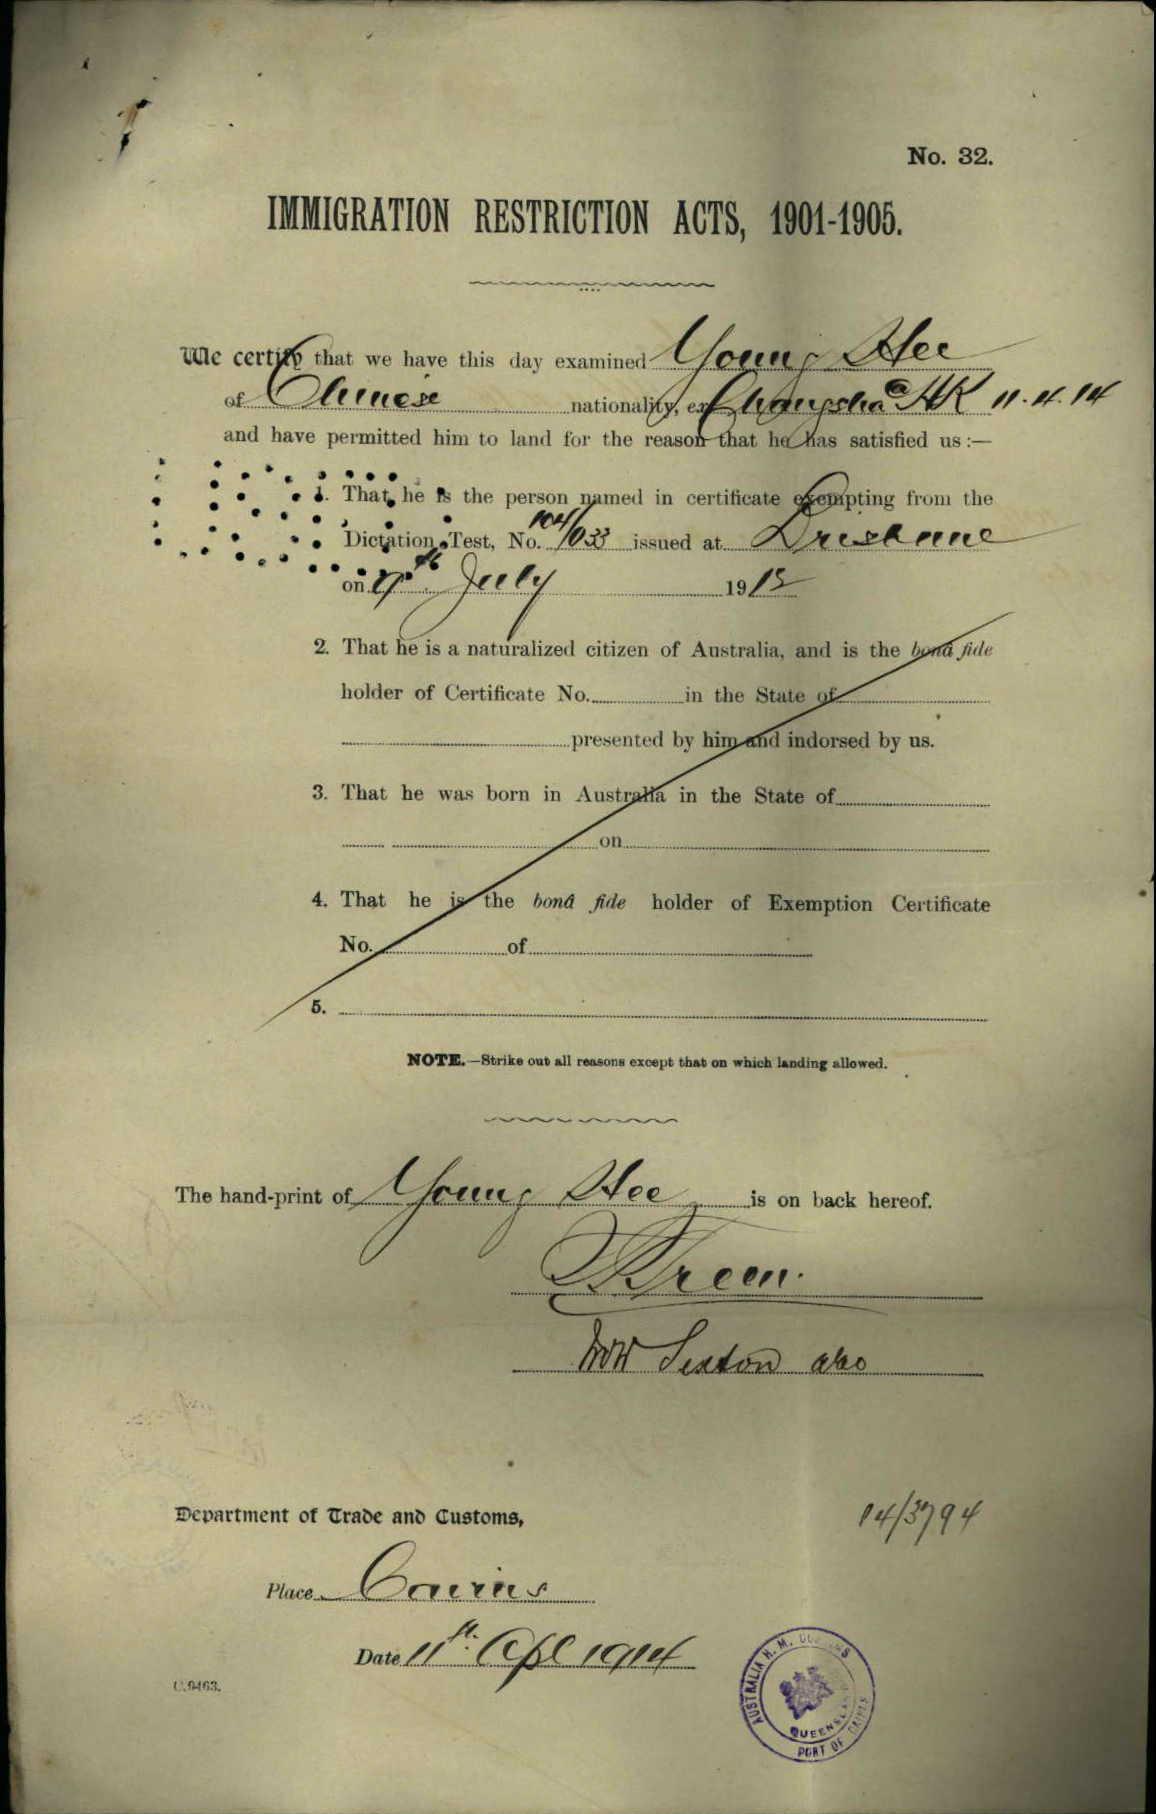 No. 32.
IMMIGRATION RESTRICTION ACTS, 1901-1905.
We certify that we have this day examined Young Hee
of Chinese nationality, ex Changsha @ HK 11.4.14
and have permitted him to land for the reason that he has satisfied us:—
1. That he is the person named in certificate exempting from the
Dictation Test, No. 104/033 issued at Brisbane
on 9th July 1912
2. That he is a naturalized citizen of Australia, and is the bonâ fide
holder of Certificate No. in the State of
presented by him and indorsed by us.
3. That he was born in Australia in the State of
on
4. That he is the bonâ fide holder of Exemption Certificate
No. of
5.
NOTE.—Strike out all reasons except that on which landing allowed.
The hand-print of Young Hee is on back hereof.
Sexton
Department of Trade and Customs,
14/3794
Place Cairns
Date 11th Apl 1914
C.9463.
AUSTRALIA H. M. CUSTOMS
QUEENSLAND
PORT OF CAIRNS